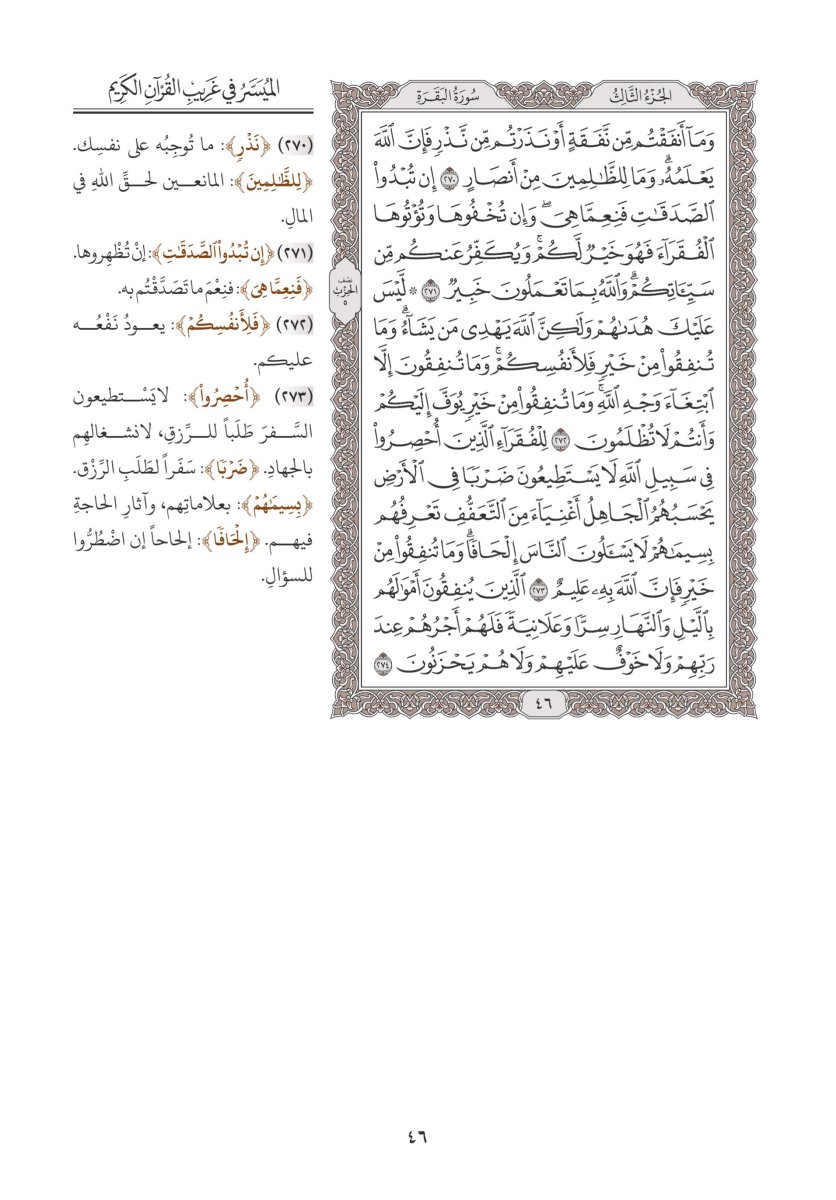 الجُزْءُ الثَّالِثُ
سُورَةُ البَقَرَةِ
وَمَآ أَنفَقْتُم مِّن نَّفَقَةٍ أَوْ نَذَرْتُم مِّن نَّذْرٍ فَإِنَّ ٱللَّهَ
يَعْلَمُهُۥۗ وَمَا لِلظَّٰلِمِينَ مِنْ أَنصَارٍ ٢٧٠ إِن تُبْدُوا۟
ٱلصَّدَقَٰتِ فَنِعِمَّا هِىَۖ وَإِن تُخْفُوهَا وَتُؤْتُوهَا
ٱلْفُقَرَآءَ فَهُوَ خَيْرٌ لَّكُمْۚ وَيُكَفِّرُ عَنكُم مِّن
سَيِّـَٔاتِكُمْۗ وَٱللَّهُ بِمَا تَعْمَلُونَ خَبِيرٌ ٢٧١ * لَّيْسَ
عَلَيْكَ هُدَىٰهُمْ وَلَٰكِنَّ ٱللَّهَ يَهْدِى مَن يَشَآءُۗ وَمَا
تُنفِقُوا۟ مِنْ خَيْرٍ فَلِأَنفُسِكُمْۚ وَمَا تُنفِقُونَ إِلَّا
ٱبْتِغَآءَ وَجْهِ ٱللَّهِۚ وَمَا تُنفِقُوا۟ مِنْ خَيْرٍ يُوَفَّ إِلَيْكُمْ
وَأَنتُمْ لَا تُظْلَمُونَ ٢٧٢ لِلْفُقَرَآءِ ٱلَّذِينَ أُحْصِرُوا۟
فِى سَبِيلِ ٱللَّهِ لَا يَسْتَطِيعُونَ ضَرْبًا فِى ٱلْأَرْضِ
يَحْسَبُهُمُ ٱلْجَاهِلُ أَغْنِيَآءَ مِنَ ٱلتَّعَفُّفِ تَعْرِفُهُم
بِسِيمَٰهُمْ لَا يَسْـَٔلُونَ ٱلنَّاسَ إِلْحَافًاۗ وَمَا تُنفِقُوا۟ مِنْ
خَيْرٍ فَإِنَّ ٱللَّهَ بِهِۦ عَلِيمٌ ٢٧٣ ٱلَّذِينَ يُنفِقُونَ أَمْوَٰلَهُم
بِٱلَّيْلِ وَٱلنَّهَارِ سِرًّا وَعَلَانِيَةً فَلَهُمْ أَجْرُهُمْ عِندَ
رَبِّهِمْ وَلَا خَوْفٌ عَلَيْهِمْ وَلَا هُمْ يَحْزَنُونَ ٢٧٤
٤٦
نصف
الحِزْب
٥
المُيَسَّرُ في غَرِيبِ القُرْآنِ الكَرِيم
(٢٧٠) ﴿نَذْرٍ﴾: ما تُوجِبُه على نفسِك.
﴿لِلظَّٰلِمِينَ﴾: المانعين لحقِّ اللهِ في
المالِ.
(٢٧١) ﴿إِن تُبْدُوا۟ ٱلصَّدَقَٰتِ﴾: إنْ تُظْهِروها.
﴿فَنِعِمَّا هِىَ﴾: فنِعْمَ ما تَصَدَّقْتُم به.
(٢٧٢) ﴿فَلِأَنفُسِكُمْ﴾: يعودُ نَفْعُه
عليكم.
(٢٧٣) ﴿أُحْصِرُوا۟﴾: لا يَسْتطيعون
السَّفرَ طَلَباً للرِّزقِ، لانشغالِهم
بالجهادِ. ﴿ضَرْبًا﴾: سَفَراً لطَلَبِ الرِّزْق.
﴿بِسِيمَٰهُمْ﴾: بعلاماتِهم، وآثارِ الحاجةِ
فيهم. ﴿إِلْحَافًا﴾: إلحاحاً إن اضْطُرُّوا
للسؤالِ.
٤٦